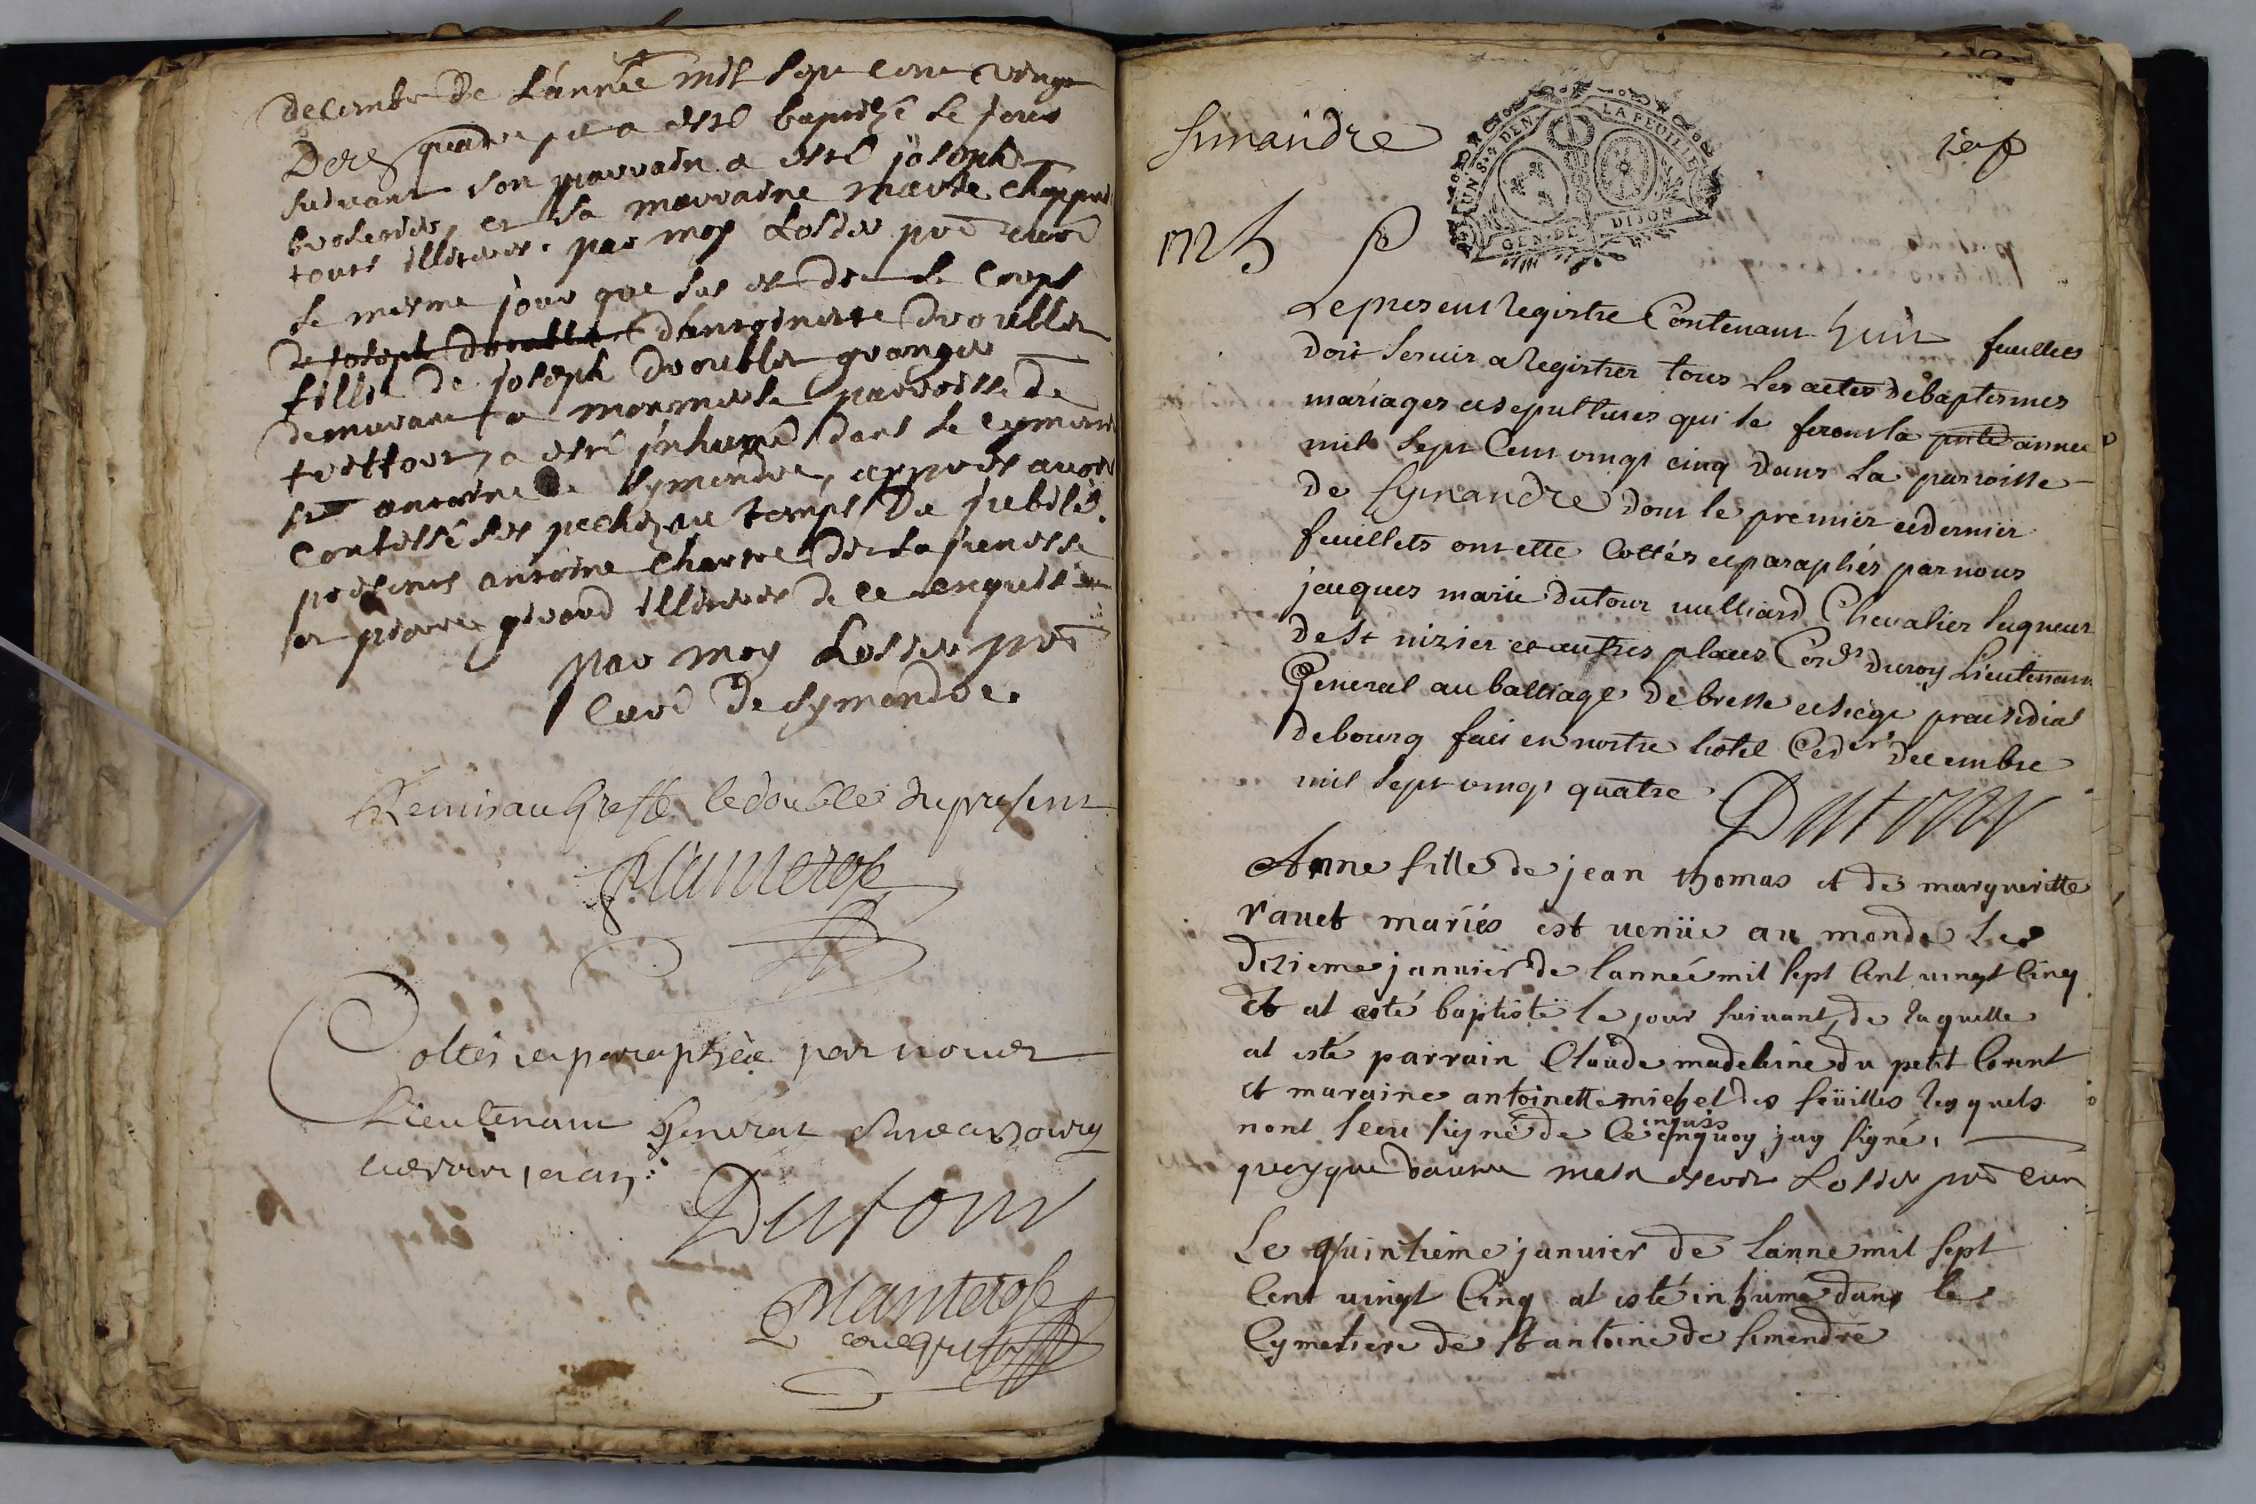 decembre de Lannée mil sept cent vingt
quatre et a esté baptisé le jour
suivant son parrain a esté joseph
et sa marraine marie
touts illiteres. par moy Losier pre curé
le mesme jour que sus est dit le corps
de joseph droublet d'antoinette droublet
fille de joseph droublet granger
demurant a parroisse de
treffort, a esté inhumé dans le cymetier
St antoine de Symendre, appres avoir
confessé ses pechez au temps du jubilé.
presents antoine de la
et pierre girard illiteres de ce enquis
par moy Losier pre
curé de Symandre.
Remis au Greffe le double du present
Planterose
Cottés et paraphée par nous
Lieutenant General
Dutour
Planterose
Simandre
UN S. 4 DEN. LA FEUILLE
GEN. DE DIJON
1er
1725 P
Le present Registre Contenant huit feuilles
doit servir a Registrer tous les actes de baptesmes
mariages et sepultures qui se feront la pnte annee
mil sept Cent vingt cinq dans la parroisse
de Symandre dont le premier et dernier
feuillets ont esté Cottés et paraphés par nous
jacques marie Dutour vulliard Chevalier seigneur
de St nizier et autres places Coner du roy Lieutenant
General au balliage de bresse et siege presidial
de bourg fait en nostre hotel Ce der decembre
mil sept vingt quatre
Dutour
Anne fille de jean thomas et de margueritte
ravet mariés est venüe au monde le
dizieme janvier de lannée mil sept Cent vingt Cinq
et at esté baptisté le jour suivant, de laquelle
at esté parrain Claude madeleine du petit Corent
et maraine antoinette michel des feüilles lesquels
nont sceu signé de ce enquis enquoy jay signé,
quoyque daune main escrit Losier pre curé
Le quinzieme janvier de lanne mil sept
Cent vingt Cinq at esté inhumé dans le
Cymetiere de St antoine de Simendre